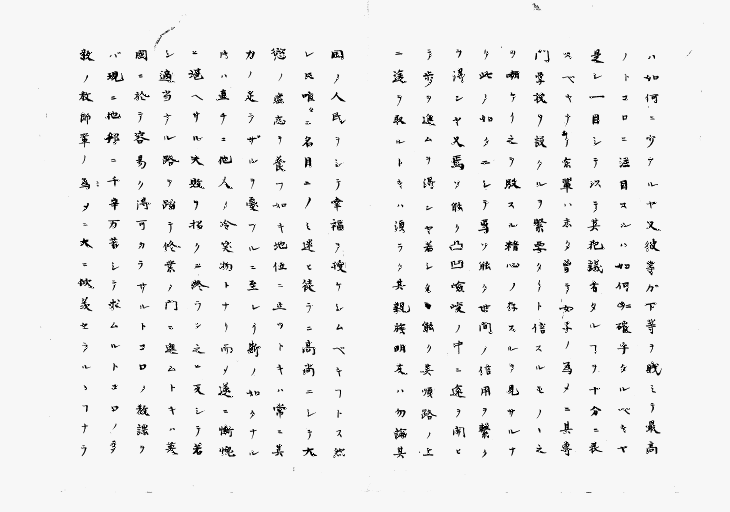 ハ如何ニ少ナルヤ又彼等ガ下等ヲ賤ミテ最高
ノトコロニ注目スルハ如何ニ確乎タルベキヤ
是レ一目シテ其犯議者タルヿヲ十分ニ表
スベキナリ余輩ハ未タ曽テ女子ノ為メニ其専
門学校ヲ設クルヲ緊要タリト信スルモノニ之
ヲ嘲ケリ之ヲ毀スル精心ノ存スルヲ見サルナ
リ此ノ如クニシテ専ソ能ク世間ノ信用ヲ繫ク
ヲ得ンヤ又焉ソ能ク凸凹嶮喚ノ中ニ途ヲ開ヒ
テ歩ヲ進ムヲ得ンヤ若シモ能ク其順路ノ上
ニ途ヲ取ルトキハ須ラク其親族朋友ハ勿論其
国ノ人民ヲシテ幸福ヲ授ケシムベキフトス然
レ𪜈唯ニ名目ニノミ迷ヒ徒ラニ高尚ニシテ大
慾ノ虚志ヲ養フ如キ地位ニ立ツトキハ常ニ其
力ノ足ラザルヲ憂フルニ至レリ斯ノ如クナル
時ハ直チニ他人ノ冷笑物トナリ而メ遂ニ慚愧
ニ堪ヘサル失敗ヲ招クニ終ラン之ニ反シテ若
シ適当ナル路ヲ踏テ修業ノ門ニ進ムトキハ英
国ニ於テ容易ク得可カラサルトコロノ教課ヲ
バ現ニ他邦ニ千辛万苦シテ求ムルトコロノ多
数ノ教師輩ノ為メニ大ニ欣羨セラルヽフナラ